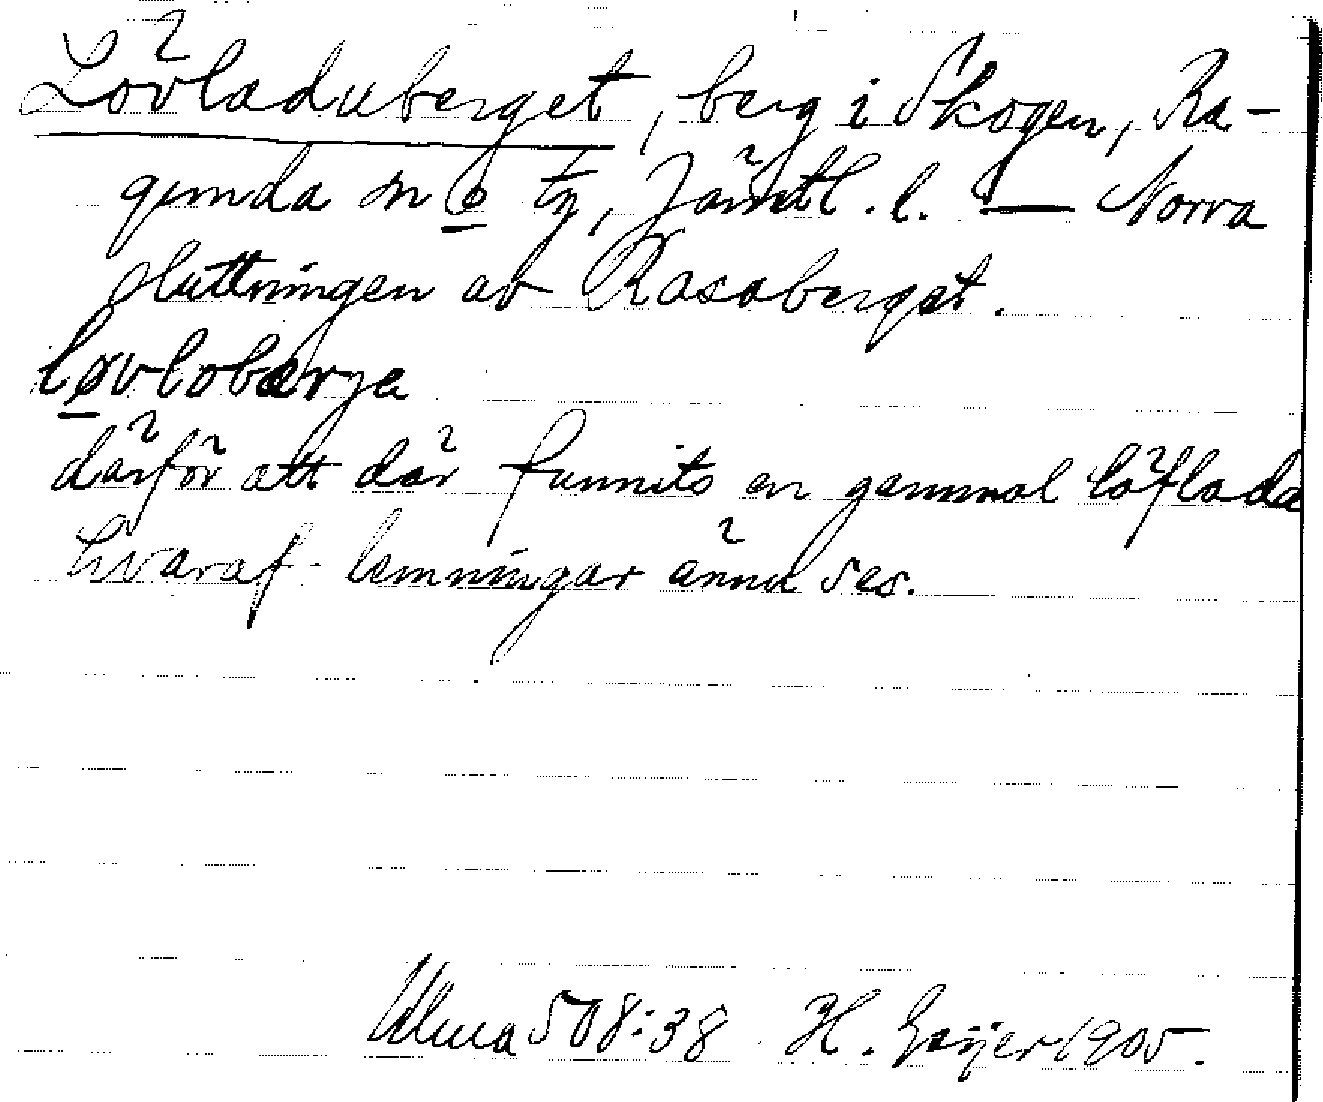 Lövladuberget, berg i Skogen, Ra-
gunda sn o tg, Jämtl. l. — Norra
sluttningen av Rasaberget.
løvlobærja
därför att där funnits en gammal löflada
hvaraf lemningar ännu ses.
Ulma 508:38 H. Geijer 1905.